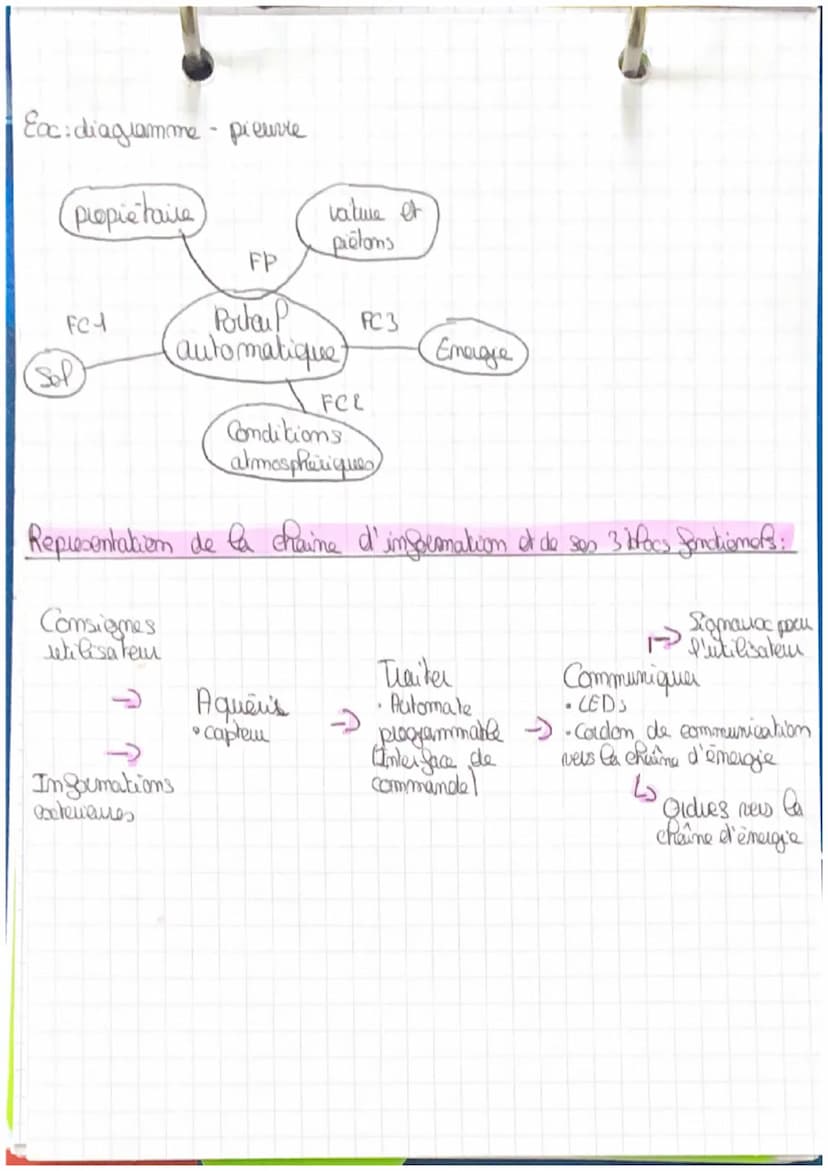 Ex: diagramme - pieuvre
propiétaire
voiture et
piétons
FP
FC1
Portail
automatique
FC3
Energie
Sol
FC2
Conditions
atmosphériques
Representation de la chaîne d'information et de ses 3 blocs fonctionels:
Consignes
utilisateur
→
Aquéris
• capteur
→
Informations
exterieures
→
Traiter
• Automate
programmable
(Interface de
commande)
→
Communiquer
• LEDs
• Cordon de communication
vers la chaîne d'énergie
→ Signaux pour
l'utilisateur
↳ Ordres vers la
chaîne d'énergie